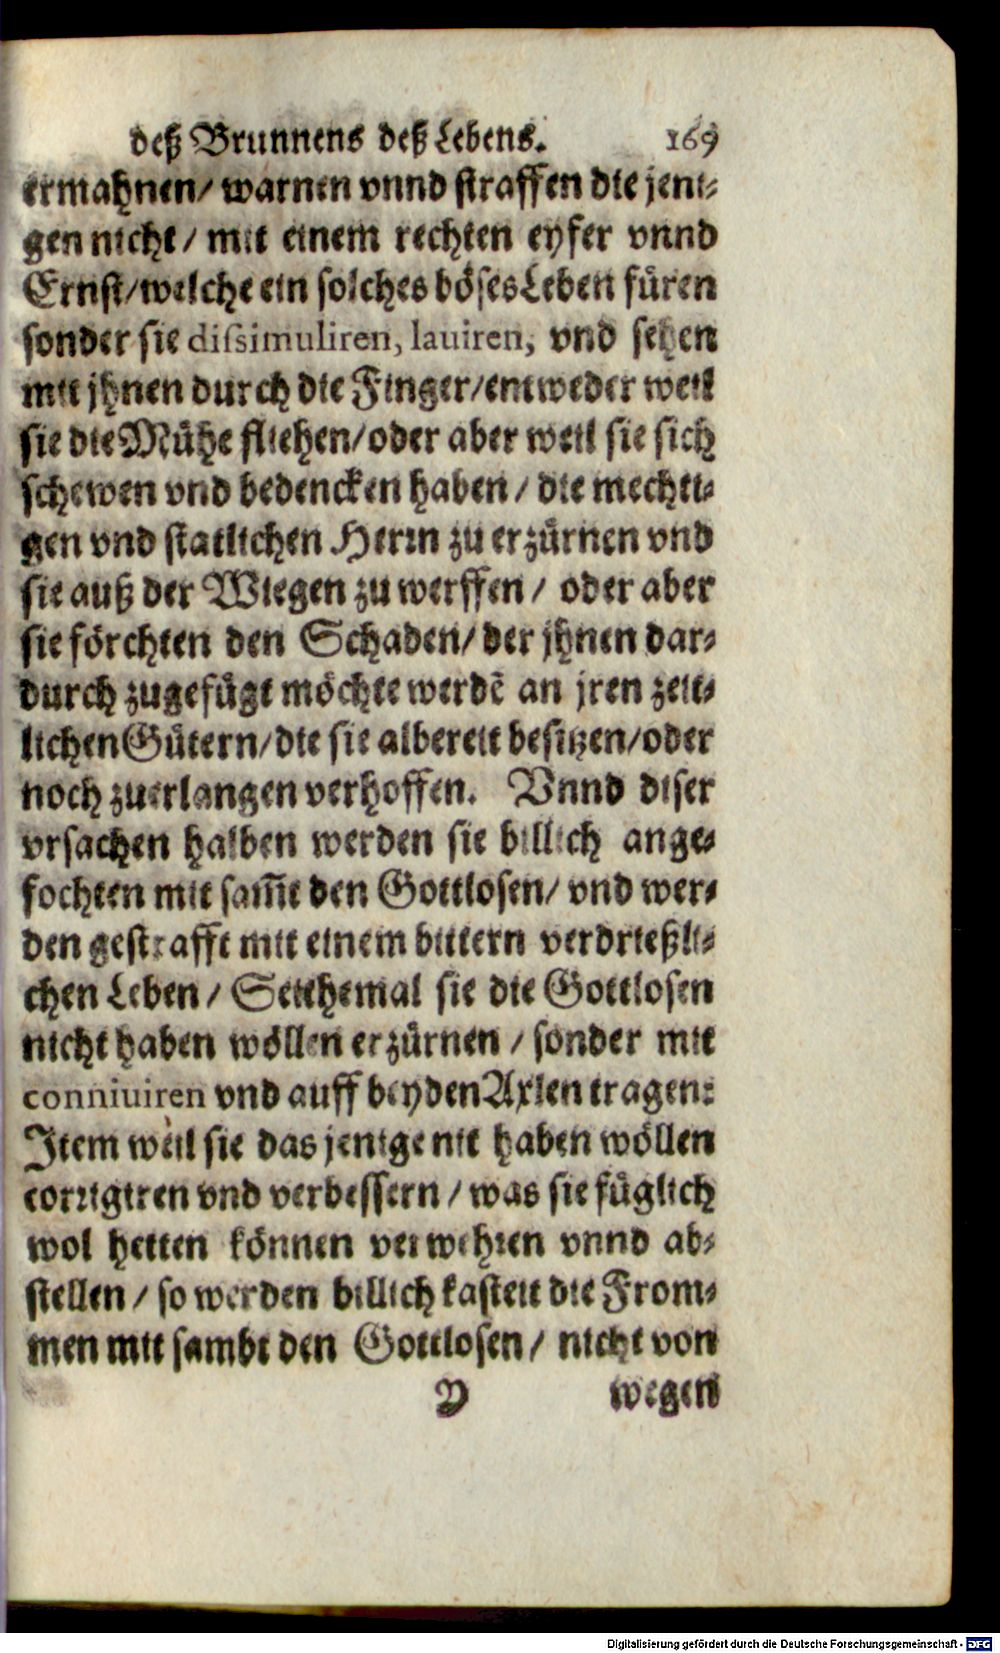 deß Brunnens deß Lebens. 169
ermahnen/ warnen vnnd straffen die jeni-
gen nicht/ mit einem rechten eyfer vnnd
Ernst/welche ein solches böses Leben füren
sonder sie dissimuliren, lauiren, vnd sehen
mit jhnen durch die Finger/entweder weil
sie die Mühe fliehen/oder aber weil sie sich
schewen vnd bedencken haben/ die mechti-
gen vnd statlichen Herrn zu erzürnen vnd
sie auß der Wiegen zu werffen/ oder aber
sie förchten den Schaden/ der jhnen dar-
durch zugefügt möchte werdē an jren zeit-
lichen Gütern/die sie albereit besitzen/oder
noch zuerlangen verhoffen. Vnnd diser
vrsachen halben werden sie billich ange-
fochten mit sam̄t den Gottlosen/ vnd wer-
den gestrafft mit einem bittern verdrießli-
chen Leben/ Seithemal sie die Gottlosen
nicht haben wöllen erzürnen / sonder mit
conniuiren vnd auff beyden Axlen tragen:
Item weil sie das jenige nit haben wöllen
corrigiren vnd verbessern/ was sie füglich
wol hetten können verwehren vnnd ab-
stellen/ so werden billich kasteit die From-
men mit sambt den Gottlosen/ nicht von
Y wegen
Digitalisierung gefördert durch die Deutsche Forschungsgemeinschaft - DFG